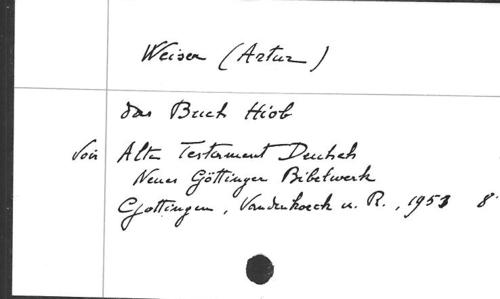 Weiser (Artur)
das Buch Hiob
Voir Alte Testament Deutsch
Neues Göttinger Bibelwerk
Göttingen, Vandenhoeck u. R., 1953 8°